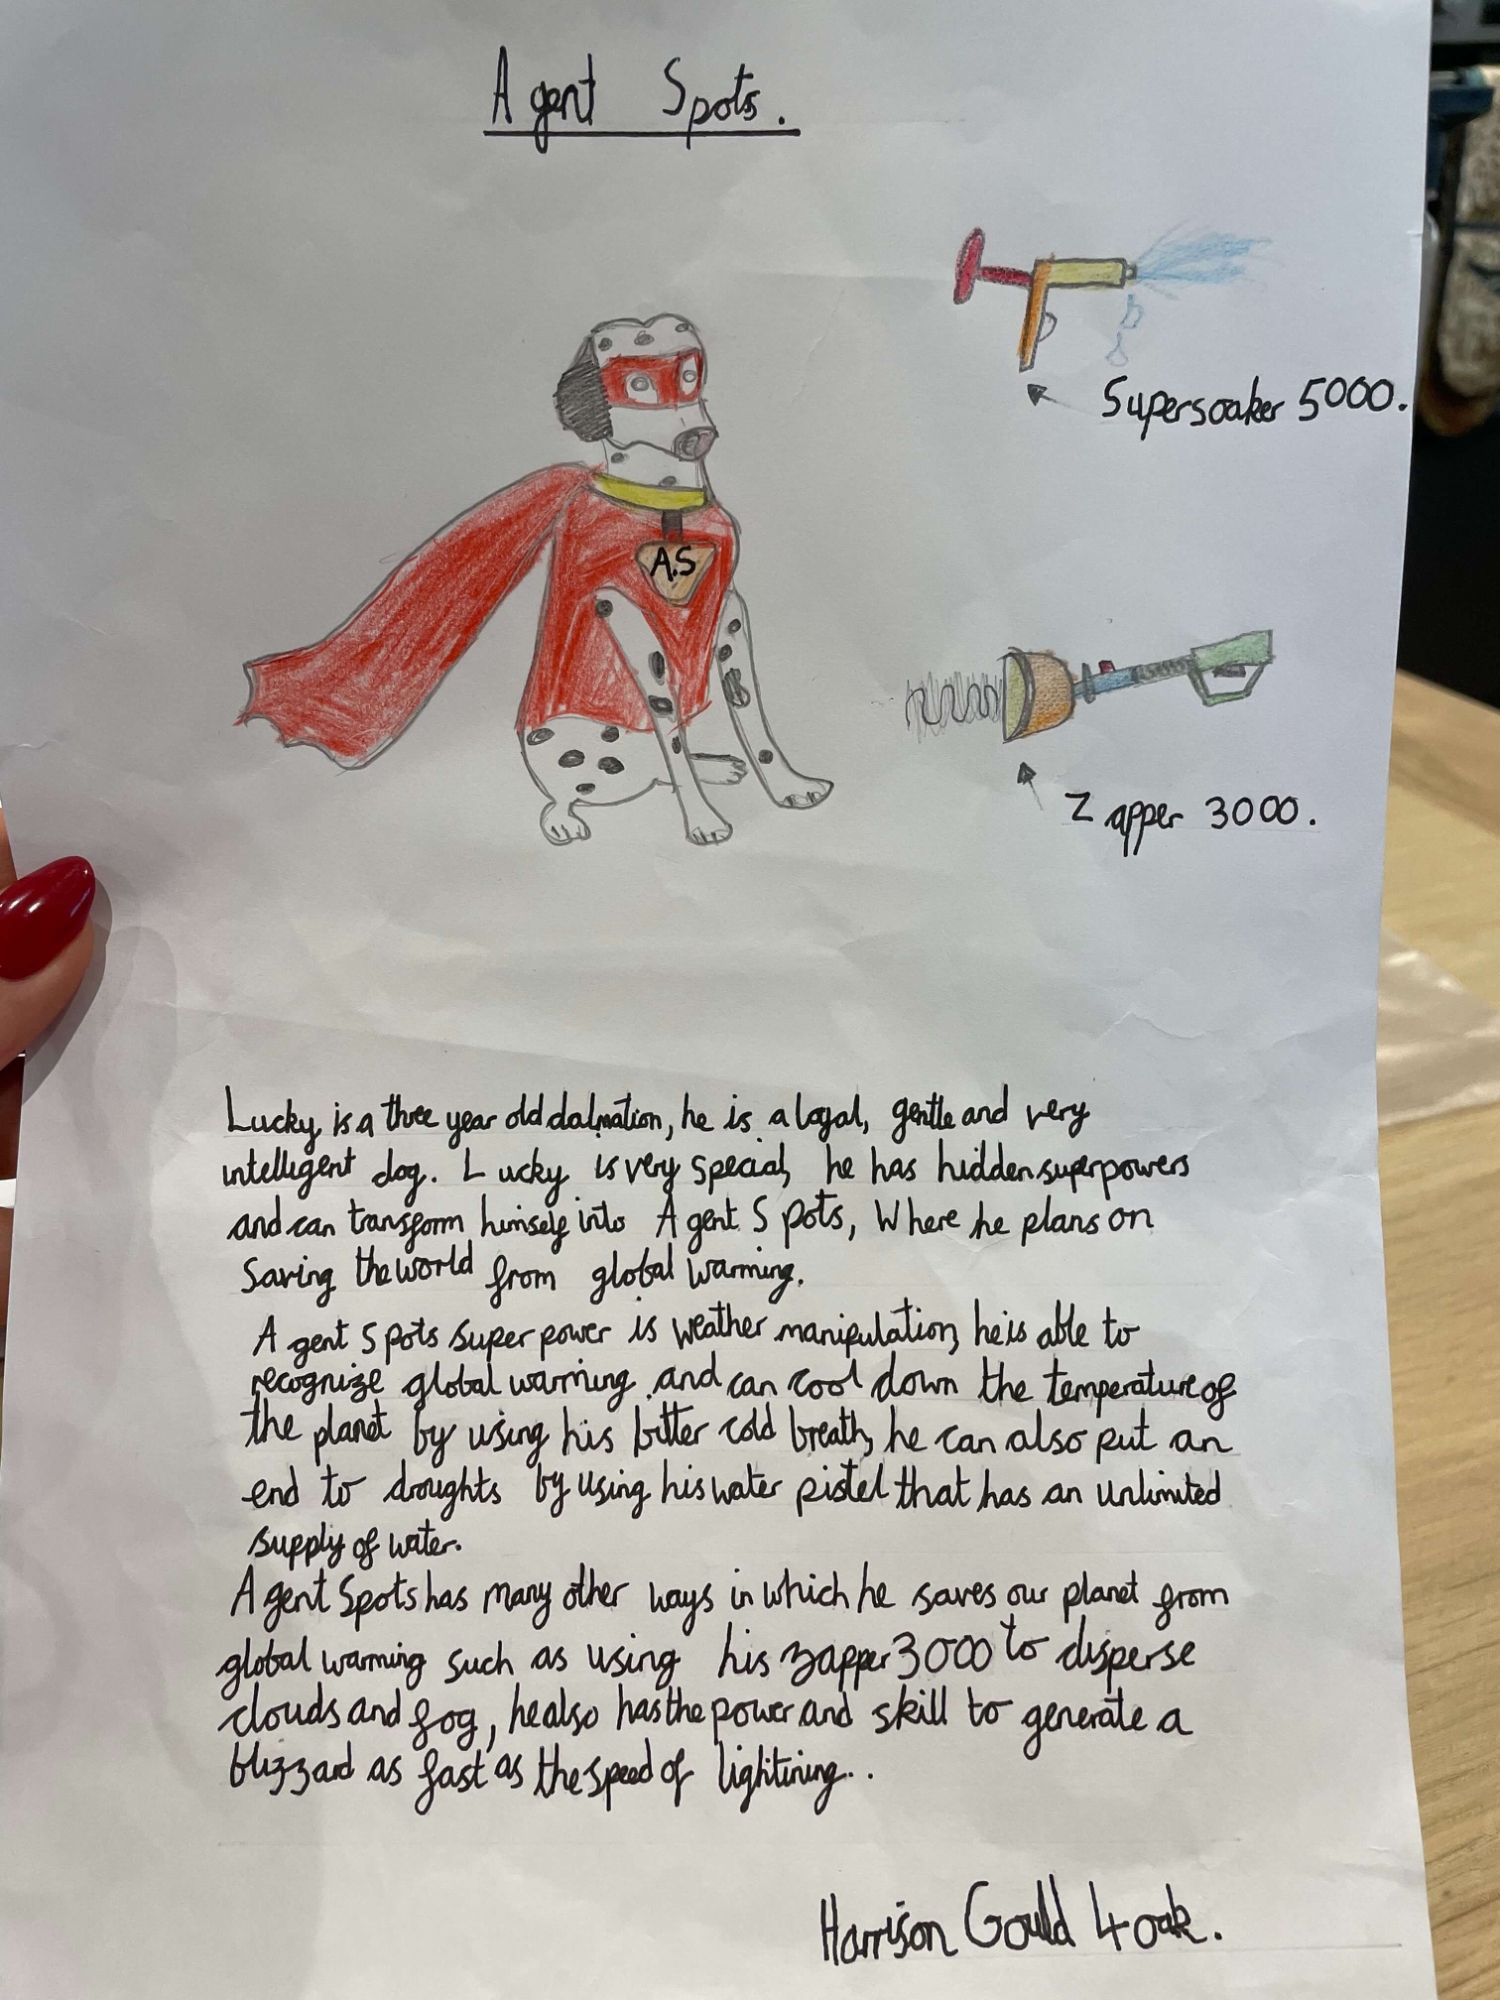 Agent Spots.
Supersoaker 5000.
A.S
Zapper 3000.
Lucky is a three year old dalmation, he is a loyal, gentle and very
intelligent dog. Lucky is very special, he has hidden superpowers
and can transform himself into Agent Spots, Where he plans on
Saving the world from global warming.
Agent Spots super power is weather manipulation, he is able to
recognize global warming and can cool down the temperature of
the planet by using his bitter cold breath, he can also put an
end to droughts by using his water pistel that has an unlimited
supply of water.
Agent Spots has many other ways in which he saves our planet from
global warming such as using his zapper 3000 to disperse
clouds and fog, he also has the power and skill to generate a
blizzard as fast as the speed of lightining..
Harrison Gould 4oak.